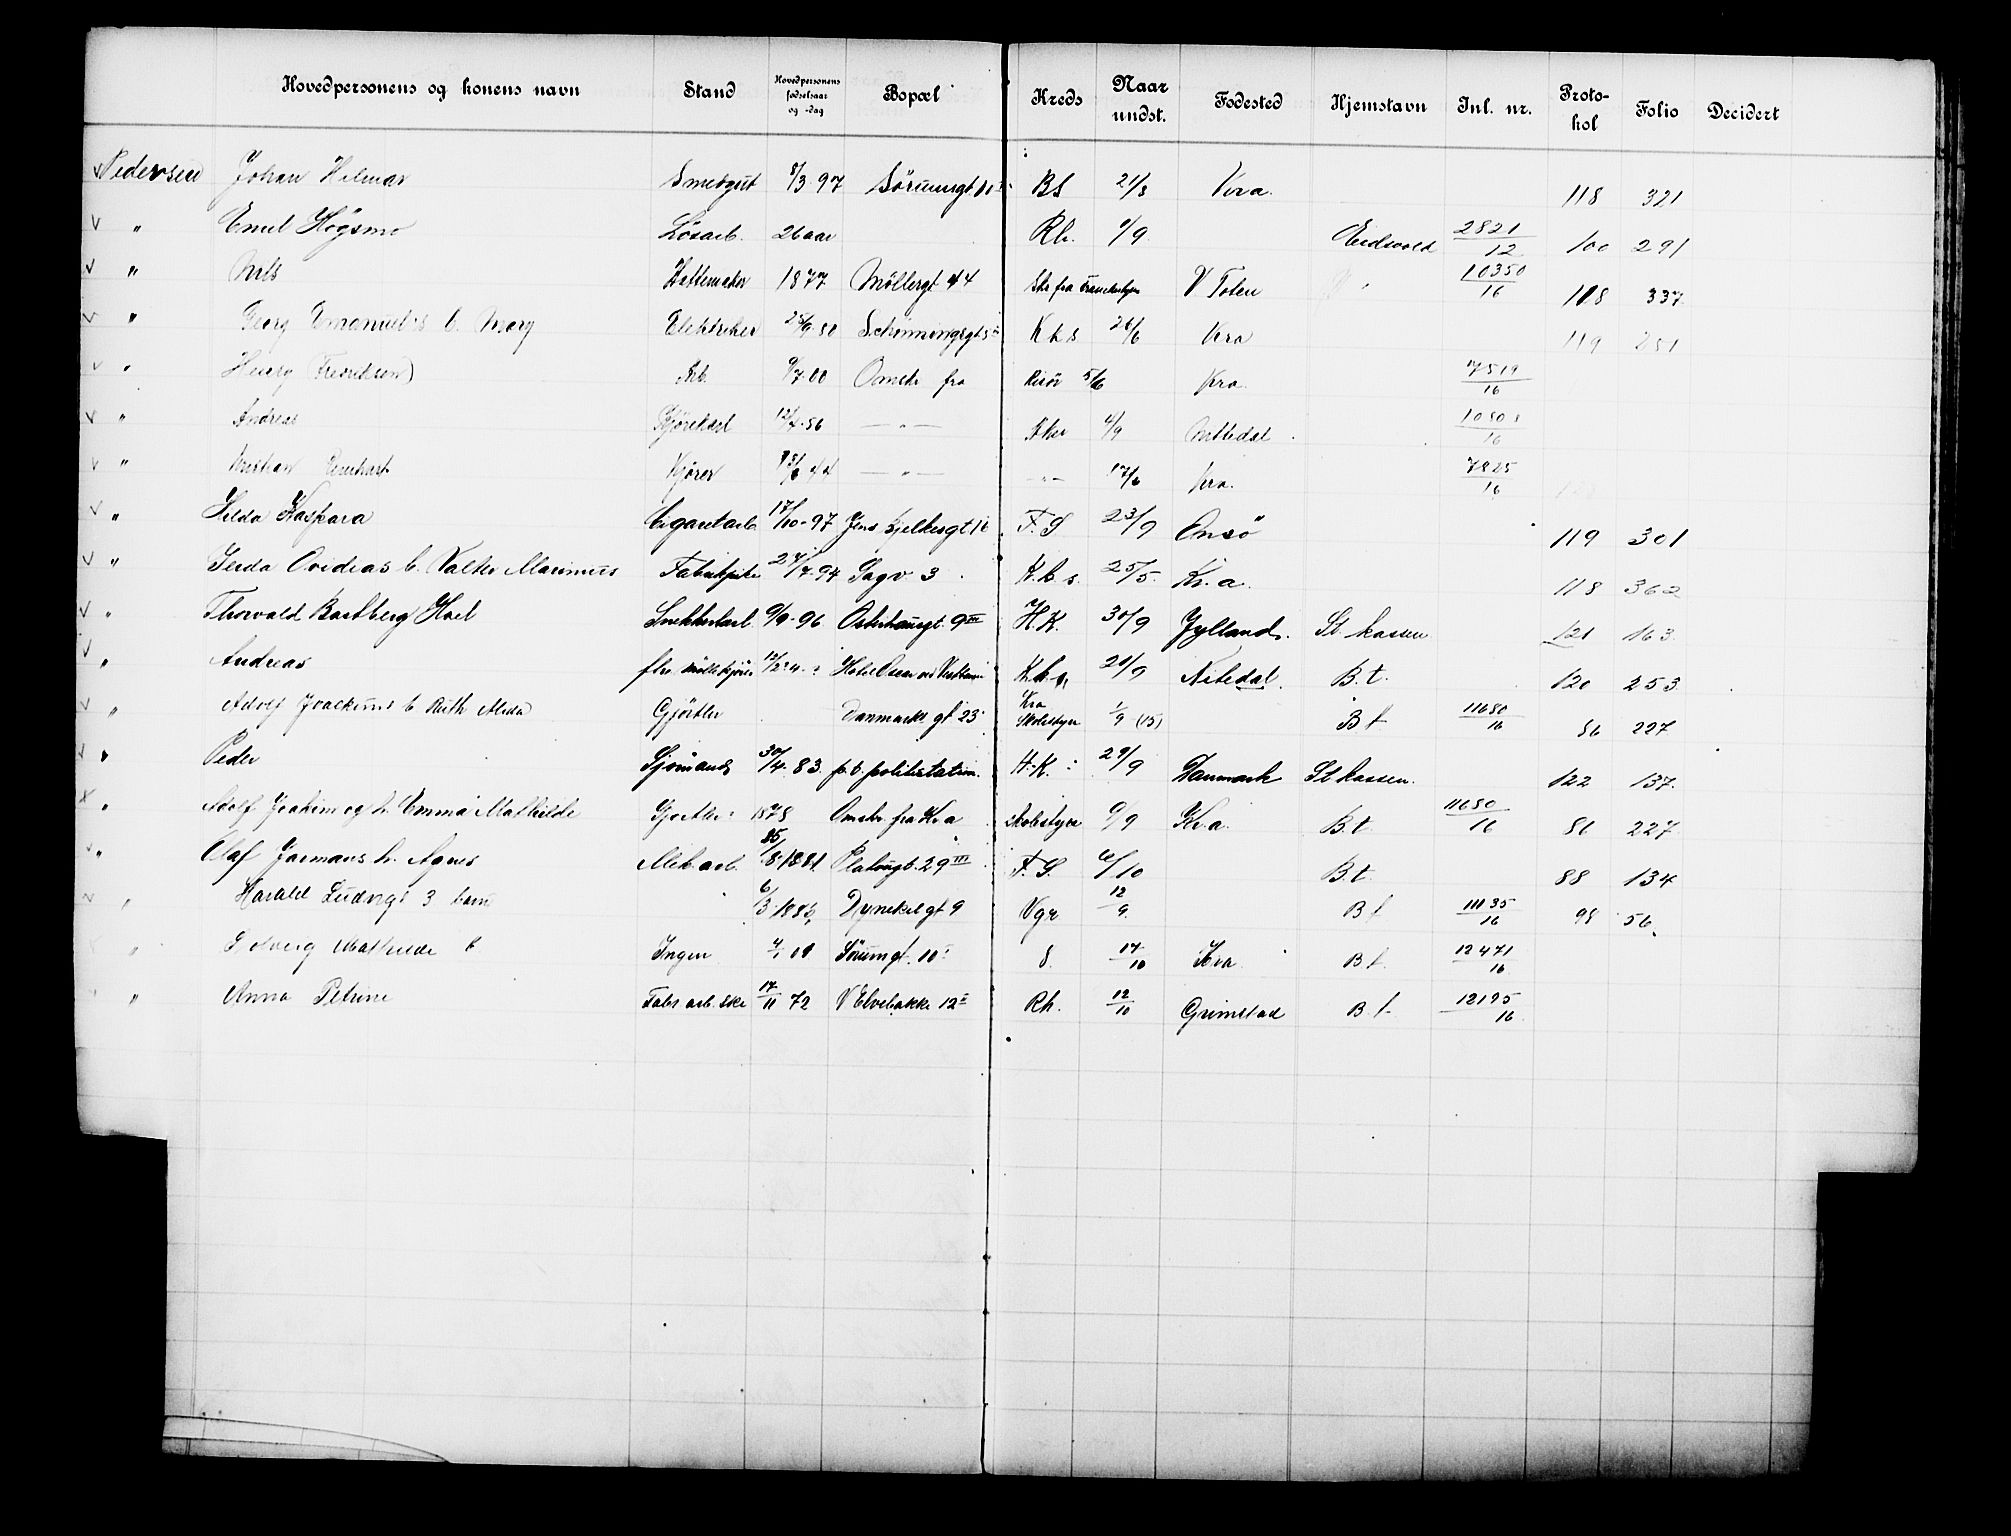 Hovedpersonens og konens navn Stand Hovedpersonens fødselsaar og -dag Bopæl Kreds Naar undst. Fødested Hjemstavn Inl. nr. Proto-kol Folio Decidert
Pedersen Johan Hilmar Smedgut 8/3 97 Sörumsgt BS 21/8 Kra. 118 321
" Emil Högsmo Lösarb. 26 aar Rh. 1/9 Eidsvold 2821/12 100 291
" Nils Hattemaker 1877 Möllergt 44 Skr fra V Toten 10350/16 118 337
" Georg Emanuel's b. Mary Elektriker 25/9 80 Schönningsgt 5 K.b.s 26/6 Kra 119 251
" Henry (Fredriksen) Arb. 9/7 00 Omskr fra Risör 5/6 Kra 7519/16
" Andreas Kjörekarl 12/4 56 — " — Aker 4/9 Nittedal 10808/16
" Kristian Reinhart Kjörer 44 — " — — " — 17/6 Kra. 7825/16
" Hilda Kaspara Cigaretarb 17/10-97 Jens Bjelkesgt 16 F.S 23/9 Onsö 119 301
" Gerda Ovidias b. Valter Marinius Fabrikpike 27/7-94 Sagv. 3 K.b.s. 25/5. Kr.a. 118 362
" Thorvald Bastberg Hoel Snekkerlærl. 9/9-96 Osterhausgt. 9III H.K. 30/9 Jylland. St.kassen 121 163.
" Andreas Hotel Oscar K.b.s. 20/9 Nitedal. B.t. 120 253
" Adolf Joackims b Ruth Alida Gjörtler Danmarks gt 23 Kra Skolestyre 1/9 (15) B t 11680/16 86 227
" Peder Sjömand 30/4-83. p.t. politistation. H.K. 29/9 Danmark St kassen. 122 137.
" Adolf Joakim og h. Emma Mathilde Gjörtler 1878 Omskr. fra Kr.a skolestyre 9/9 Kr.a. B.t. 11680/16 86 227
" Olaf Jarmans h. Agnes Mek arb. 1881 Platousgt. 29III F.S. 6/10 B.t. 88 134
" Harald Ludvigs 3 barn 6/3-1882 Dynekilgt 9 Vgr 12/9. B t 11135/16 98 56.
" Solveig Mathilde b Ingen 4/1 09 Sörumgt. 10I S. 17/10 Kra B t. 12471/16
" Anna Petrine Fabr arb.ske 17/11 72 V Elvebakke 12I Rh. 12/10 Grimstad B t- 12195/16.